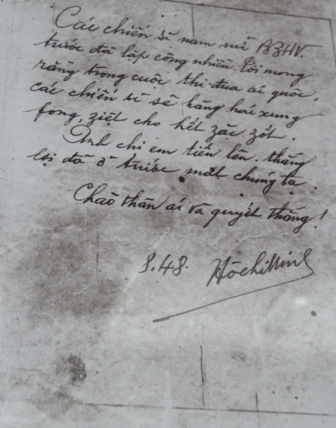 Các chiến sĩ nam nữ BZHV.
trước đã lập công nhiều. Tôi mong
rằng trong cuộc thi đua ái quốc,
các chiến sĩ sẽ hăng hái xung
fong, ziệt cho hết zặc zốt.
Anh chị em tiến lên. thắng
lợi đã ở trước mắt chúng ta.
Chào thân ái và quyết thắng!
8.48. HồchíMinh